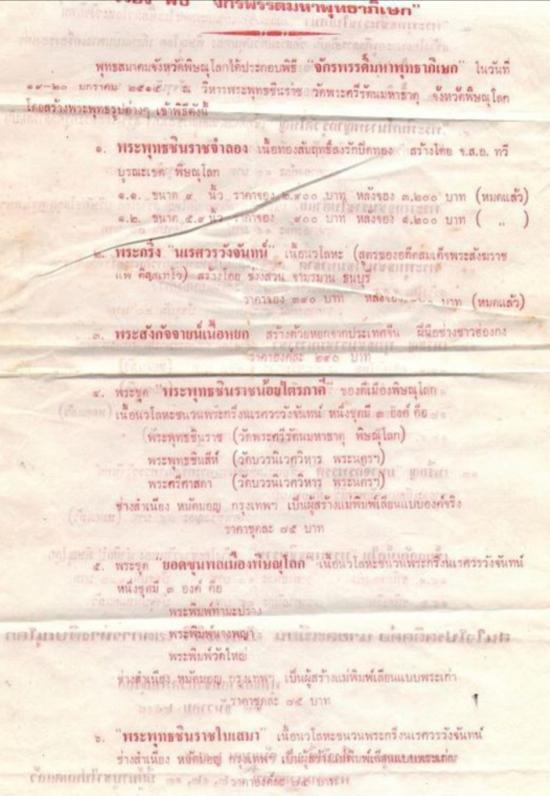 เรื่อง พิธี "จักรพรรดิ์มหาพุทธาภิเษก"
พุทธสมาคมจังหวัดพิษณุโลกได้ประกอบพิธี "จักรพรรดิ์มหาพุทธาภิเษก" ในวันที่
๑๙-๒๐ มกราคม ๒๕๑๕ ณ วิหารพระพุทธชินราช วัดพระศรีรัตนมหาธาตุ จังหวัดพิษณุโลก
โดยสร้างพระพุทธรูปต่างๆ เข้าพิธีดังนี้
๑. พระพุทธชินราชจำลอง เนื้อทองสัมฤทธิ์ลงรักปิดทอง สร้างโดย จ.ส.อ. ทวี
บูรณะเขต พิษณุโลก
๑.๑. ขนาด ๙ นิ้ว ราคาจอง ๒,๙๐๐ บาท หลังจอง ๓,๒๐๐ บาท (หมดแล้ว)
๑.๒. ขนาด ๕.๙ นิ้ว ราคาจอง ๙๐๐ บาท หลังจอง ๑,๒๐๐ บาท ( " )
๒. พระกริ่ง "นเรศวรวังจันทน์" เนื้อนวโลหะ (สูตรของอดีตสมเด็จพระสังฆราช
แพ) สร้างโดย ช่างสวน ธนบุรี
ราคาจอง ๓๙๐ บาท หลังจอง บาท (หมดแล้ว)
๓. พระสังกัจจายน์เนื้อหยก สร้างด้วยหยกจากประเทศจีน ฝีมือช่างชาวฮ่องกง
ราคาองค์ละ ๒๙๐ บาท
๔. พระชุด "พระพุทธชินราชน้อยไตรภาคี" ของดีเมืองพิษณุโลก
เนื้อนวโลหะชนวนพระกริ่งนเรศวรวังจันทน์ หนึ่งชุดมี ๓ องค์ คือ
พระพุทธชินราช (วัดพระศรีรัตนมหาธาตุ พิษณุโลก)
พระพุทธชินสีห์ (วัดบวรนิเวศวิหาร พระนครฯ)
พระศรีศาสดา (วัดบวรนิเวศวิหาร พระนครฯ)
ช่างสำเนียง หนัดมอญ กรุงเทพฯ เป็นผู้สร้างแม่พิมพ์เลียนแบบองค์จริง
ราคาชุดละ ๗๕ บาท
๕. พระชุด ยอดขุนพลเมืองพิษณุโลก เนื้อนวโลหะชนวนพระกริ่งนเรศวรวังจันทน์
หนึ่งชุดมี ๓ องค์ คือ
พระพิมพ์ท่ามะปราง
พระพิมพ์นางพญา
พระพิมพ์วัดใหญ่
ช่างสำเนียง หนัดมอญ กรุงเทพฯ เป็นผู้สร้างแม่พิมพ์เลียนแบบพระเก่า
ราคาชุดละ ๗๕ บาท
๖. "พระพุทธชินราชใบเสมา" เนื้อนวโลหะชนวนพระกริ่งนเรศวรวังจันทน์
ช่างสำเนียง หนัดมอญ กรุงเทพฯ เป็นผู้สร้างแม่พิมพ์เลียนแบบพระเก่า
ราคาองค์ละ ๒๕ บาท